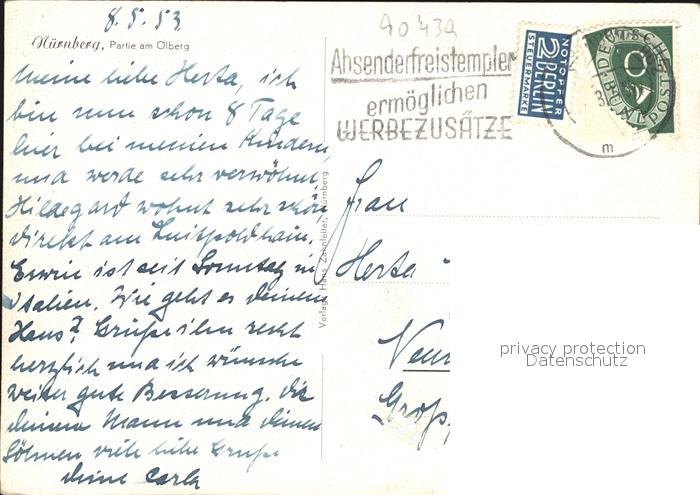 8.5.53
Nürnberg, Partie am Ölberg
Meine liebe Herta, ich
bin nun schon 8 Tage
hier bei meinen Kindern,
und werde sehr verwöhnt.
Hildegard wohnt sehr schön
direkt am Luitpoldhain.
Erwin ist seit Sonntag in
Italien. Wie geht es deinem
Hans? Grüße ihn recht
herzlich und ich wünsche
weiter gute Besserung. Dir
deinem Mann und deinen
Söhnen viele liebe Grüße
deine Carla
Verlag: Hans Zahnleiter, Nürnberg
90439
Absenderfreistempler
ermöglichen
WERBEZUSÄTZE
NOTOPFER
2 BERLIN
STEUERMARKE
DEUTSCHE
BUNDESPOST
m
Frau
Herta
privacy protection
Datenschutz